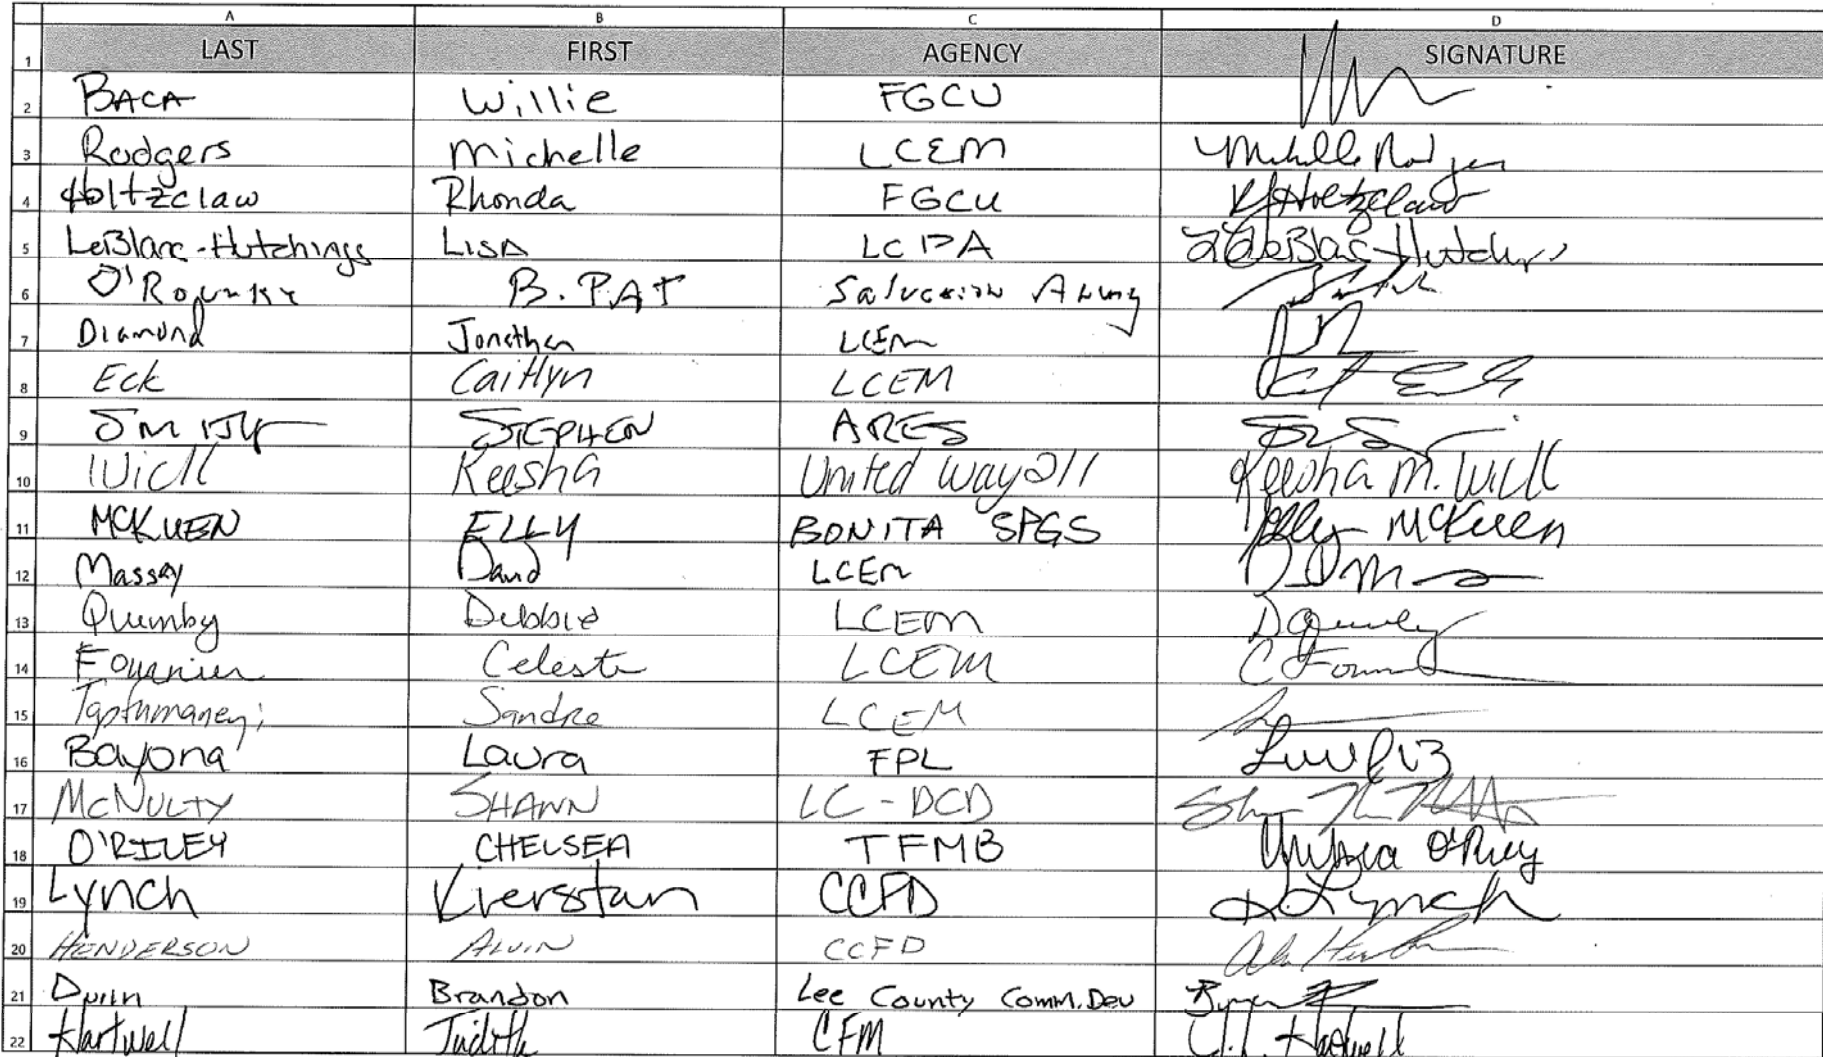 A B C D
LAST FIRST AGENCY SIGNATURE
1
2 BACA Willie FGCU
3 Rodgers Michelle LCEM Michelle Rodgers
4 Holtzclaw Rhonda FGCU Holtzclaw
5 LeBlanc-Hutchings LISA LCPA LeBlanc-Hutchings
6 B. PAT Salvation Army
7 Diamond Jonathan LCEM
8 Eck Caitlyn LCEM
9 SMITH STEPHEN ARES
10 Wick Keesha United Way 211 Keesha M. Wick
11 MCKUEN ELLY BONITA SPGS Elly McKuen
12 Massey David LCEM
13 Quimby Debbie LCEM
14 Fournier Celeste LCEM
15 LCEM
16 Bayona Laura FPL
17 McNULTY SHAWN LC-DCD
18 O'RILEY CHELSEA TFMB Chelsea O'Riley
19 Lynch Kierstan CCFD Lynch
20 HENDERSON ALVIN CCFD
21 Brandon Lee County Comm. Dev
22 Hartwell Judith CFM Hartwell